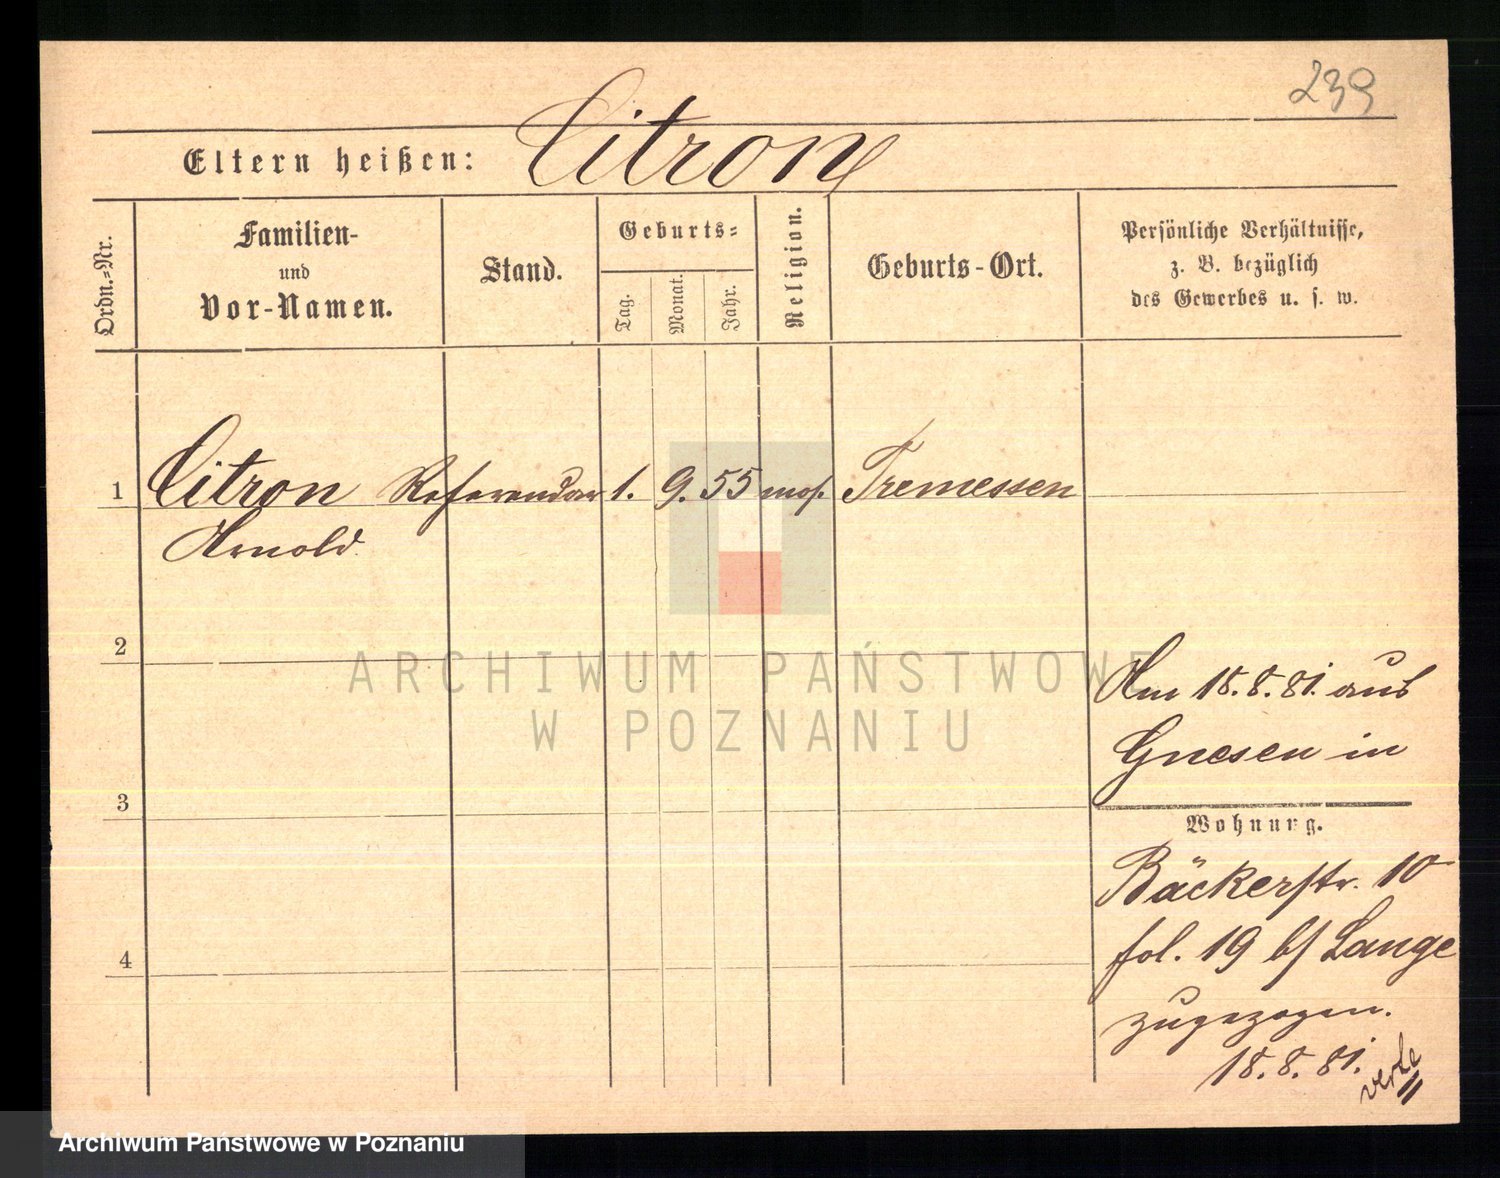 239
Eltern heißen: Citron
Ordn.-Nr.
Familien-
und
Vor-Namen.
Stand.
Geburts-
Tag.
Monat.
Jahr.
Religion.
Geburts-Ort.
Persönliche Verhältnisse,
z. B. bezüglich
des Gewerbes u. s. w.
1 Citron Referendar 1. 9. 55 mos. Tremessen
Arnold
2
ARCHIWUM PAŃSTWOWE
W POZNANIU
Am 18.8.81. aus
Gnesen in
3
Wohnung.
Bäckerstr. 10
fol. 19 b/ Lange
4
zugezogen.
18.8.81.
verte
Archiwum Państwowe w Poznaniu